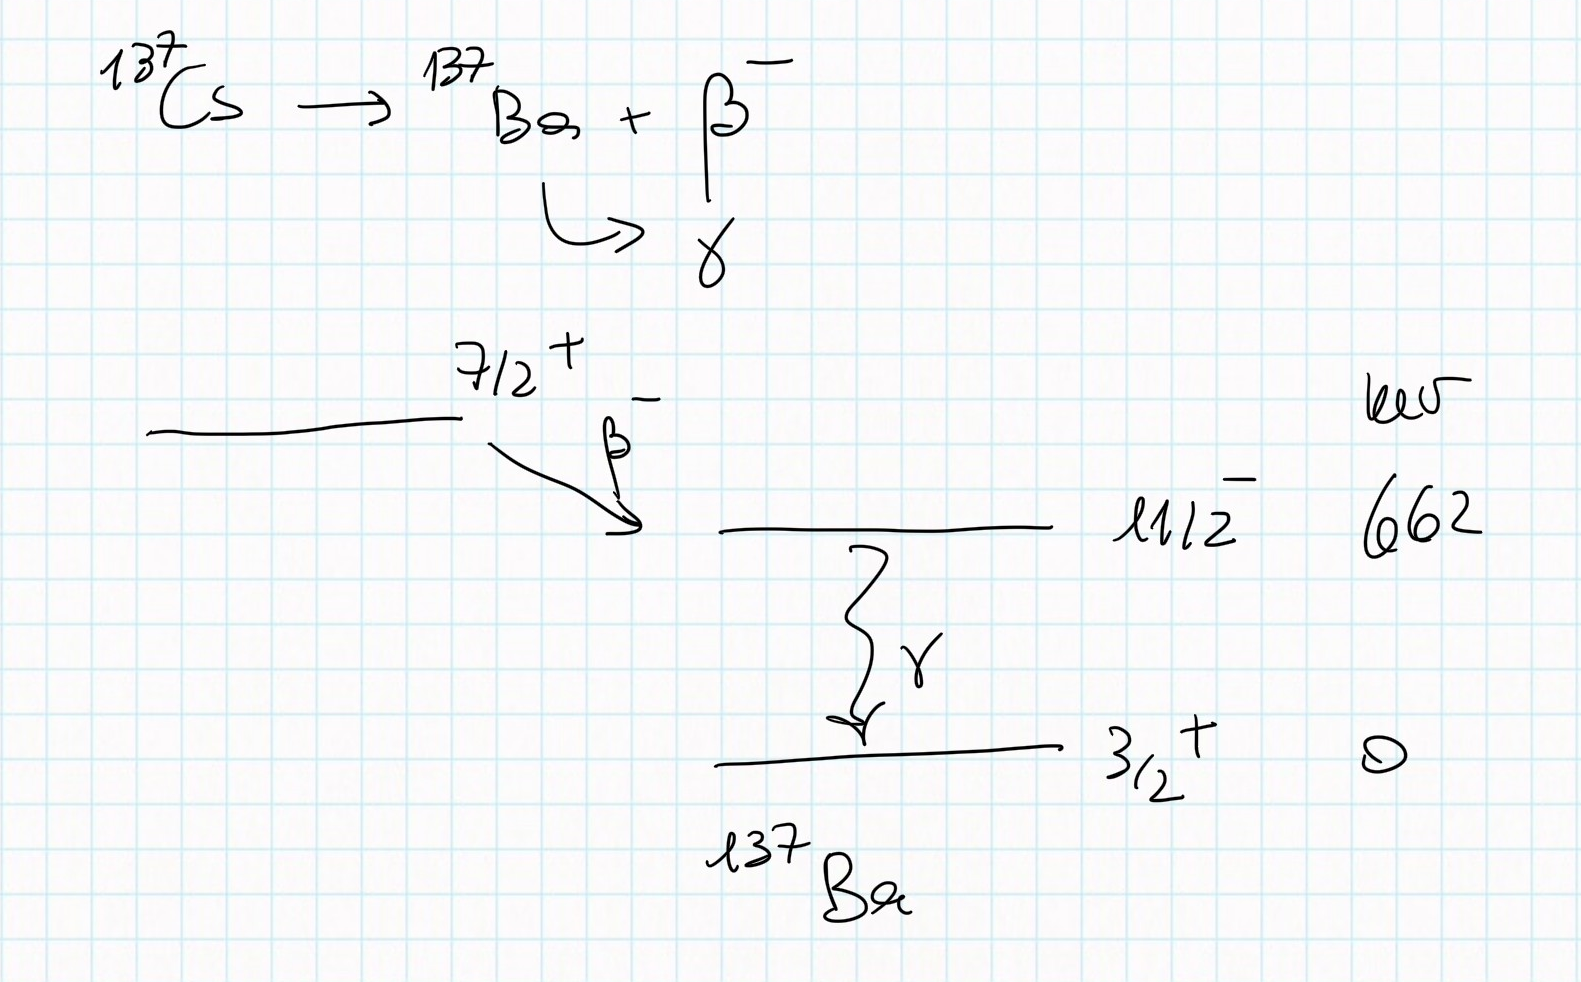 ¹³⁷Cs → ¹³⁷Ba + β⁻
↳ γ
7/2⁺
β⁻
keV
11/2⁻ 662
γ
3/2⁺ 0
¹³⁷Ba